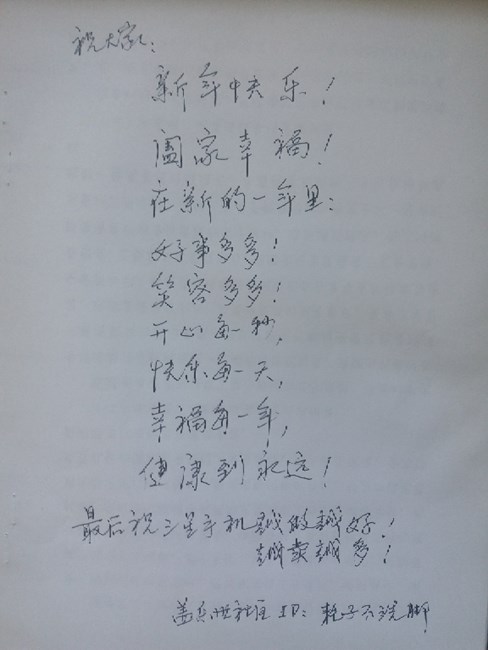 祝大家:
新年快乐!
阖家幸福!
在新的一年里:
好事多多!
笑容多多!
开心每一秒,
快乐每一天,
幸福每一年,
健康到永远!
最后祝三星手机越做越好!
越卖越多!
盖乐世社区 ID: 耗子不洗脚